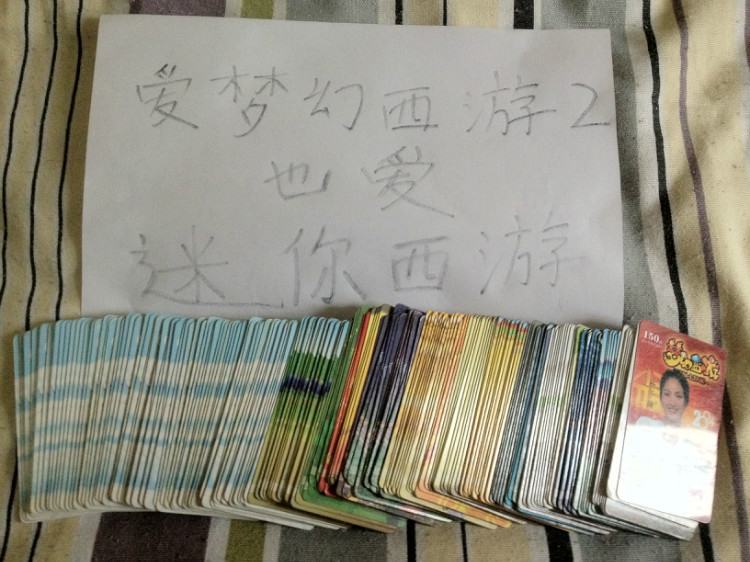 爱梦幻西游2
也爱
迷你西游
150